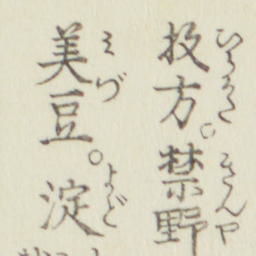 ひらかた きんや
枚方。禁野
みづ よど
美豆。淀